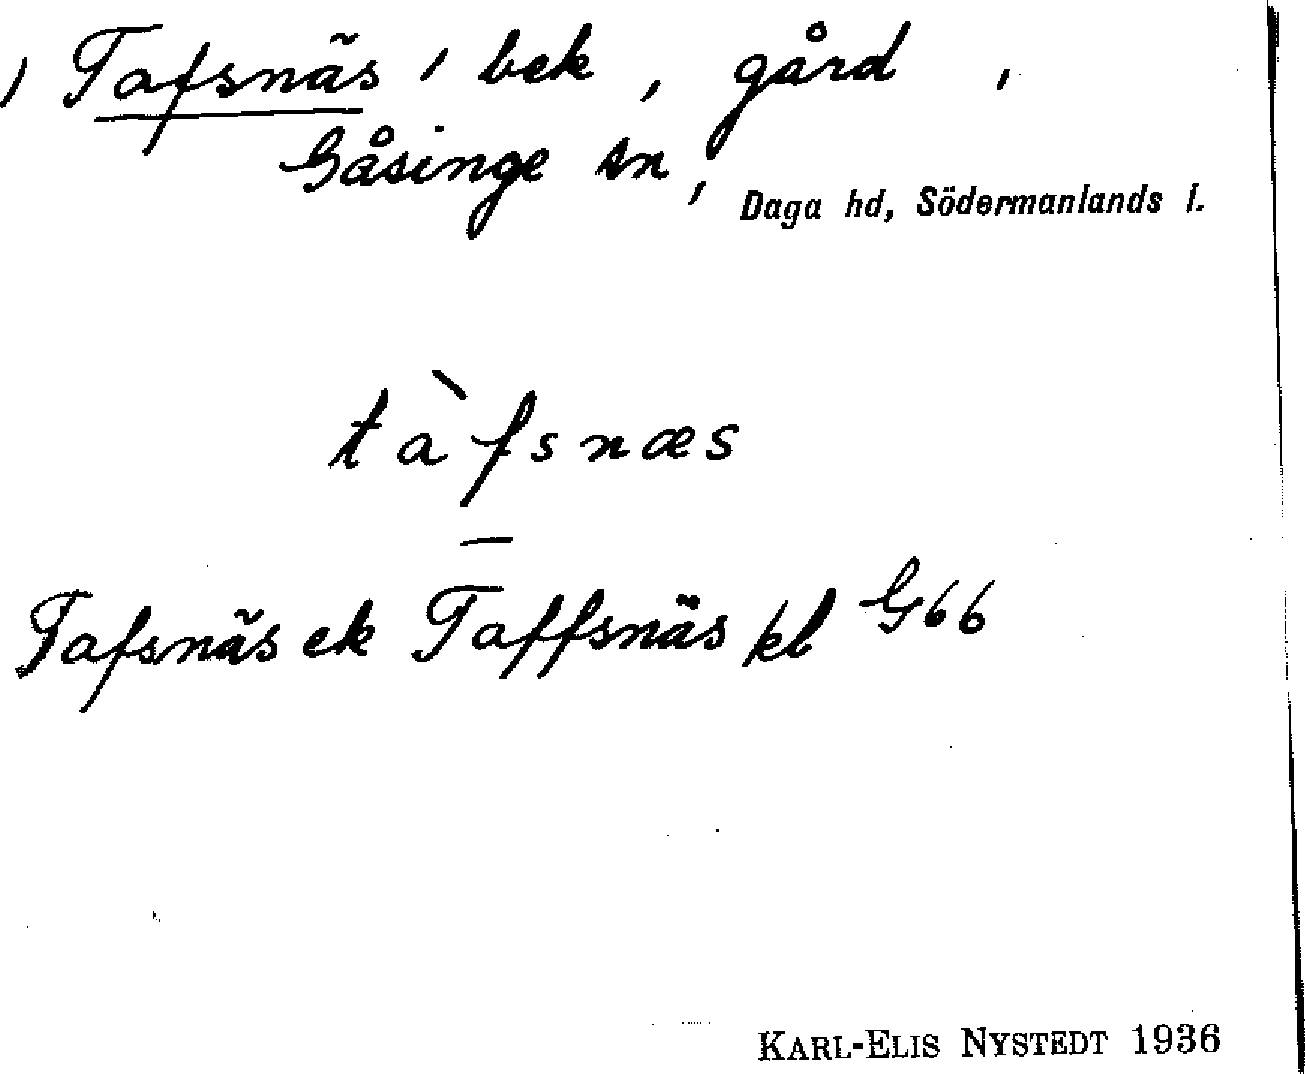 ) Tafsnäs / bek , gård ,
Gåsinge sn , Daga hd, Södermanlands l.
tàfsnæs
—
Tafsnäs ek Taffsnäs kl G66
KARL-ELIS NYSTEDT 1936